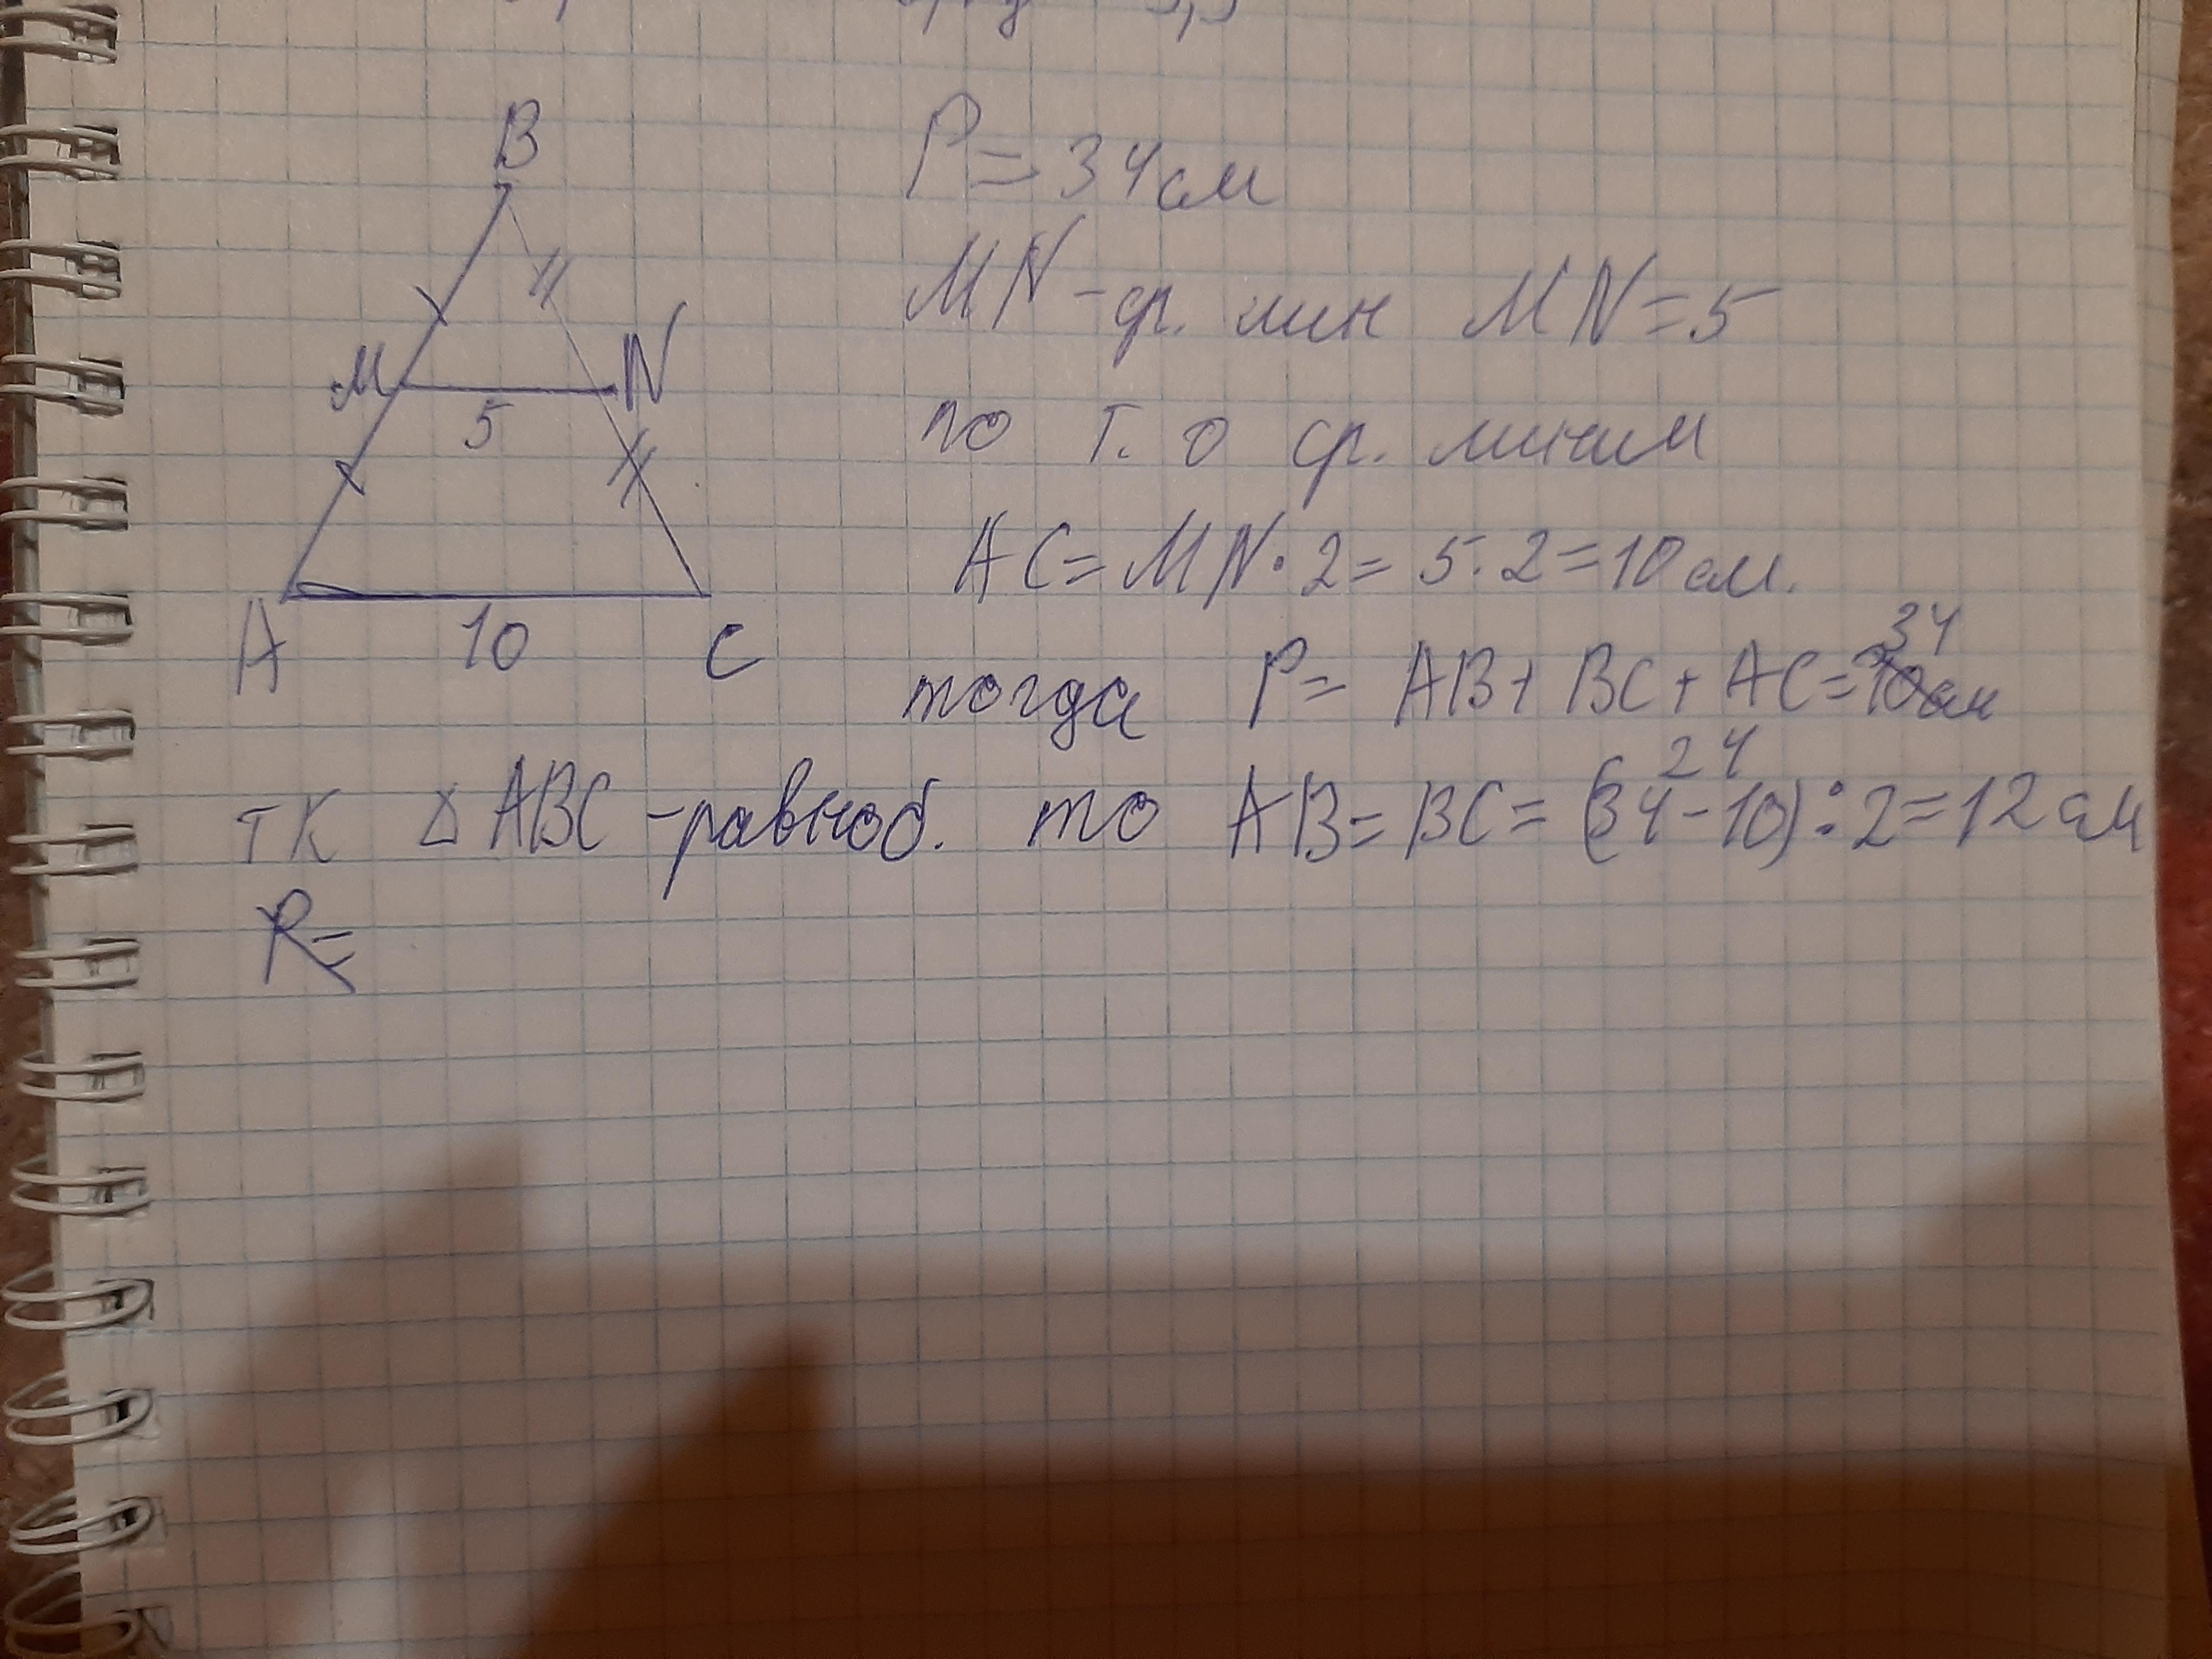 B
P = 34 см
MN - ср. лин MN = 5
M N
5
по т. о ср. линии
AC = MN · 2 = 5 · 2 = 10 см.
A 10 C
34
тогда P = AB + BC + AC = 10 см
24
тк △ ABC - равноб. то AB = BC = (34 - 10) : 2 = 12 см
R =